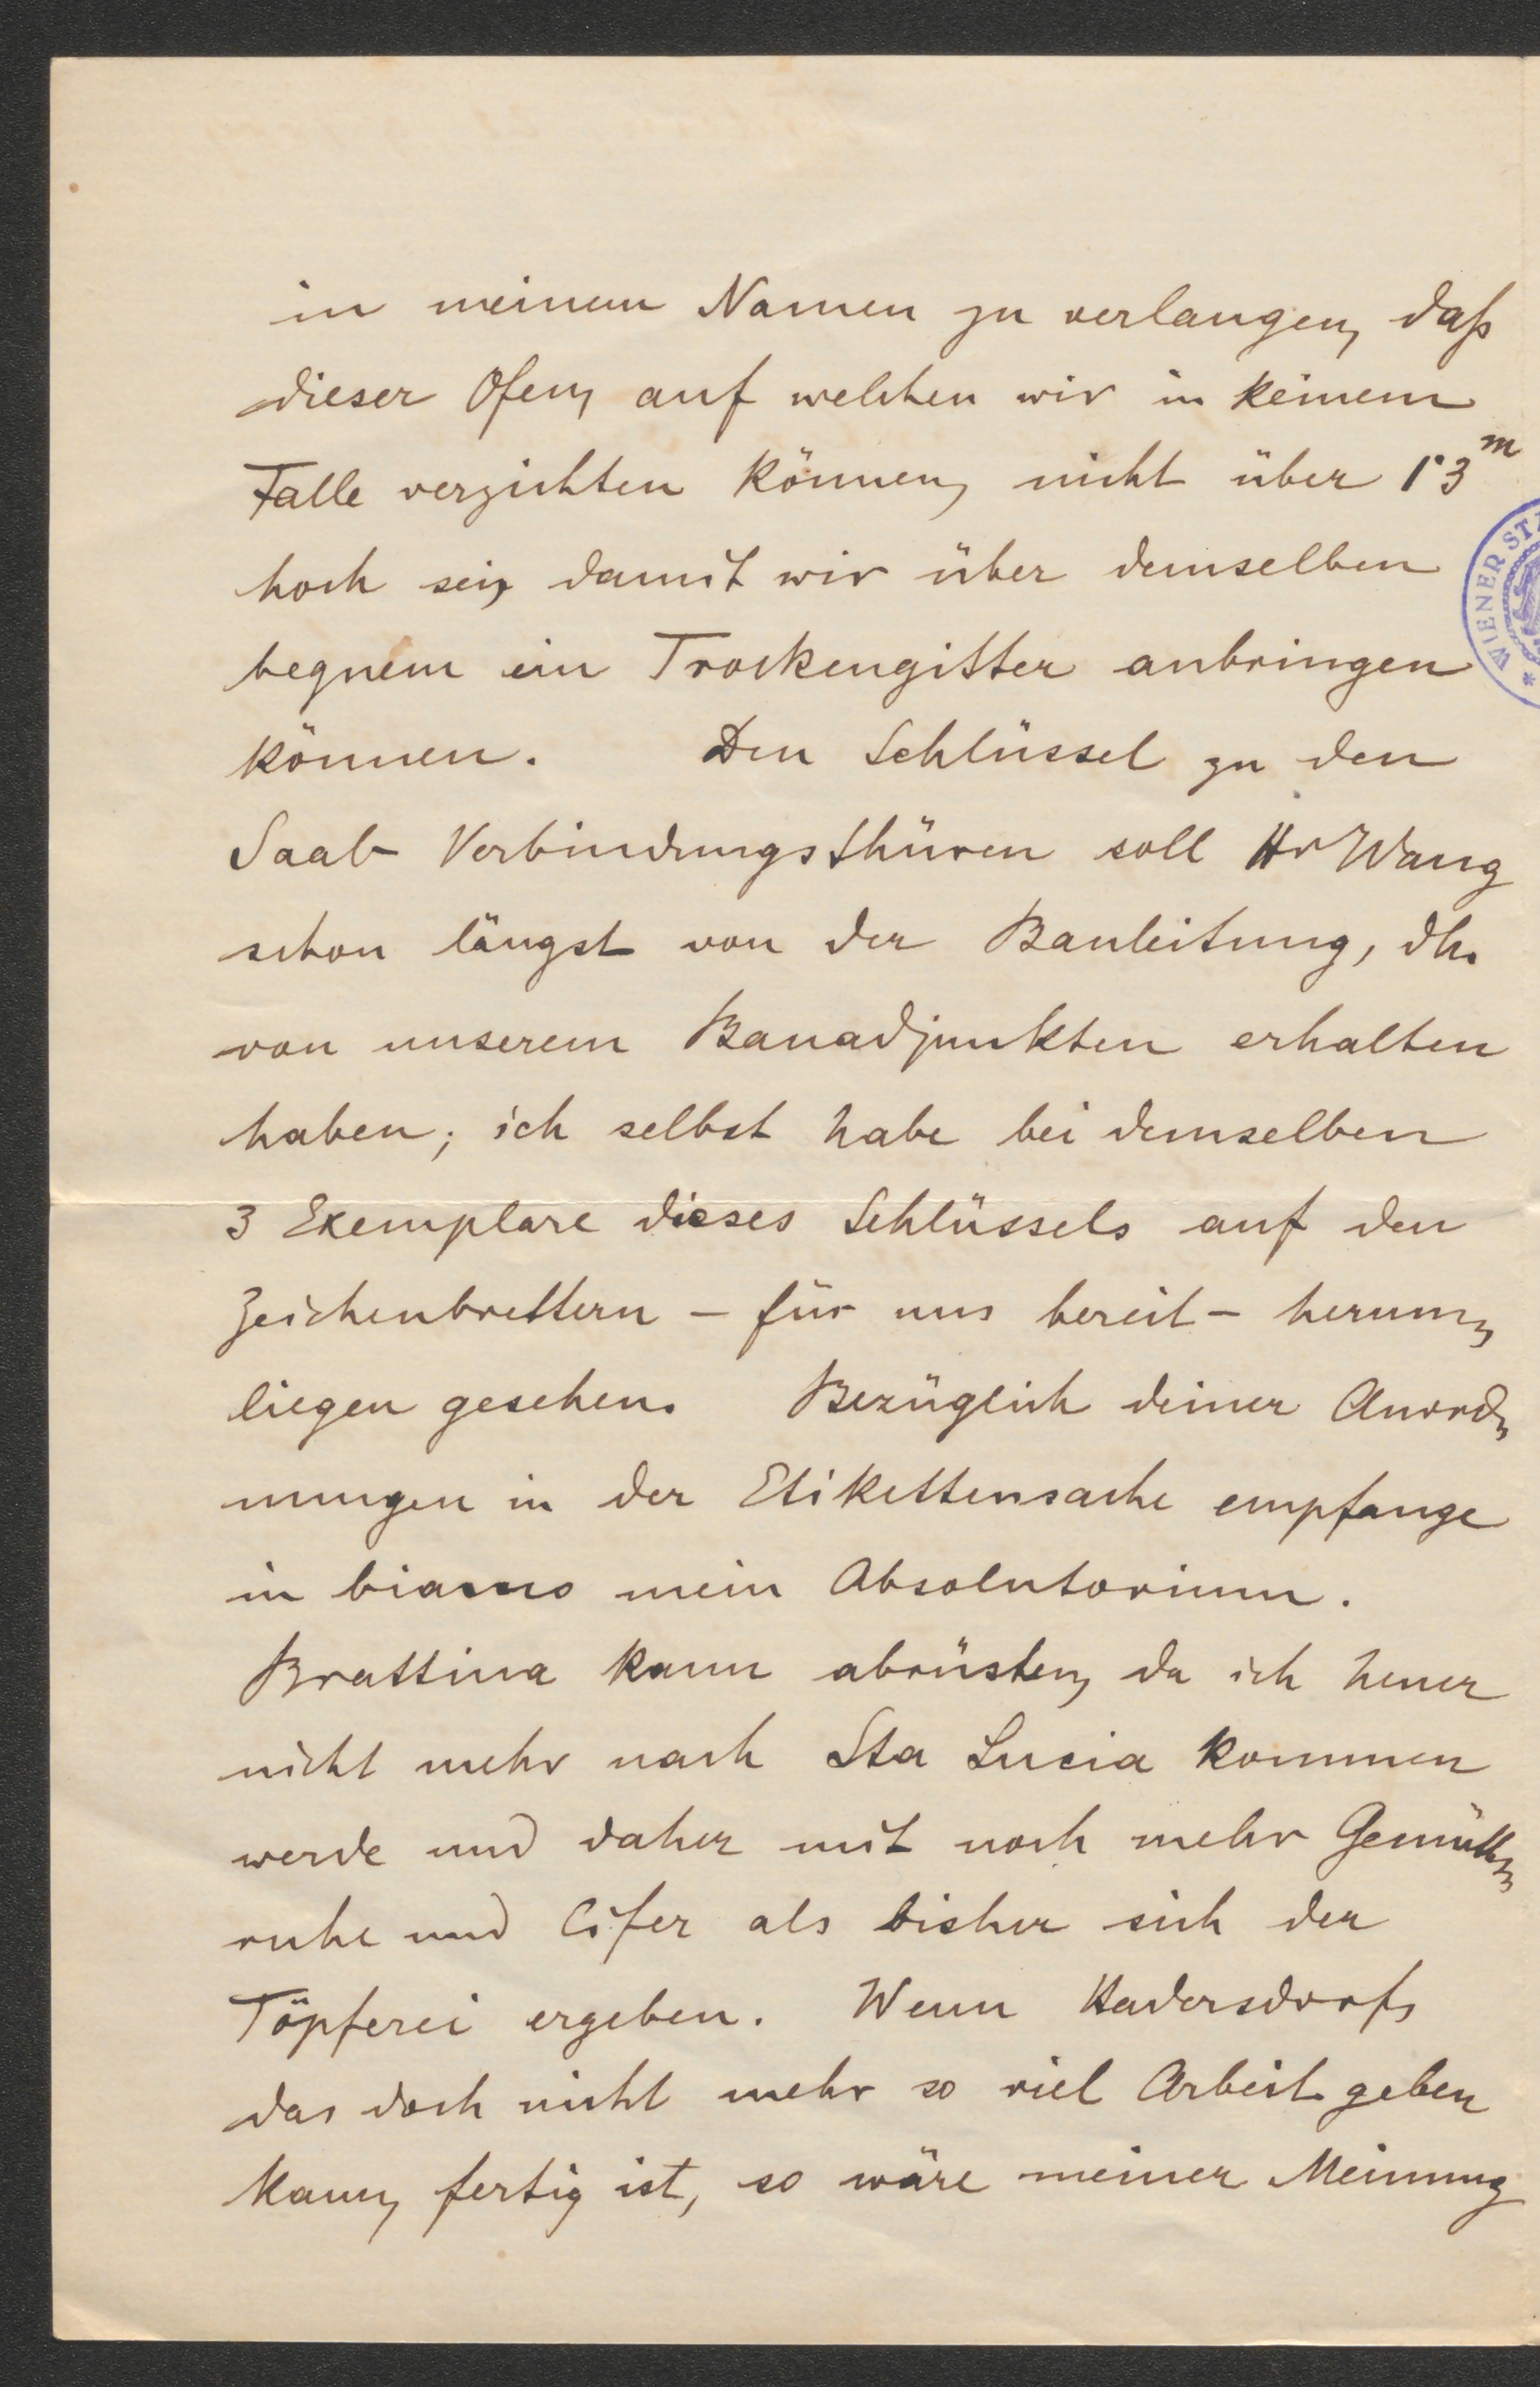 in meinem Namen zu verlangen, daß
dieser Ofen, auf welchen wir in keinem
Falle verzichten können, nicht über 1·3m
hoch sei, damit wir über demselben
bequem ein Trockengitter anbringen
können. Den Schlüssel zu den
Saal-Verbindungsthüren soll Hr Wang
schon längst von der Bauleitung, dh.
von unserem Bauadjunkten erhalten
haben; ich selbst habe bei demselben
3 Exemplare dieses Schlüssels auf den
Zeichenbrettern – für uns bereit – herum-
liegen gesehen. Bezüglich deiner Anord-
nungen in der Etikettensache empfange
in bianco mein Absolutorium.
Brattina kann abrüsten, da ich heuer
nicht mehr nach Sta Lucia kommen
werde und daher mit noch mehr Gemüths-
ruhe und Eifer als bisher sich der
Töpferei ergeben. Wenn Hadersdorf,
das doch nicht mehr so viel Arbeit geben
kann, fertig ist, so wäre meiner Meinung
WIENER ST